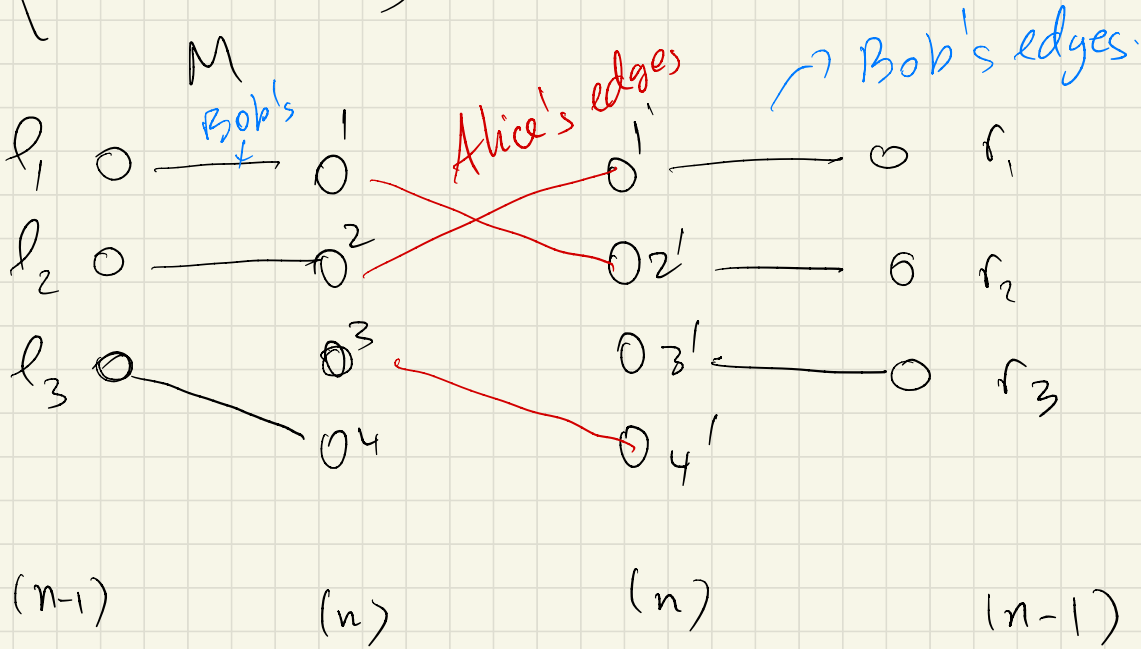 M
Bob's
Alice's edges
Bob's edges.
l₁ 1 1' r₁
l₂ 2 2' r₂
l₃ 3 3' r₃
4 4'
(n-1) (n) (n) (n-1)